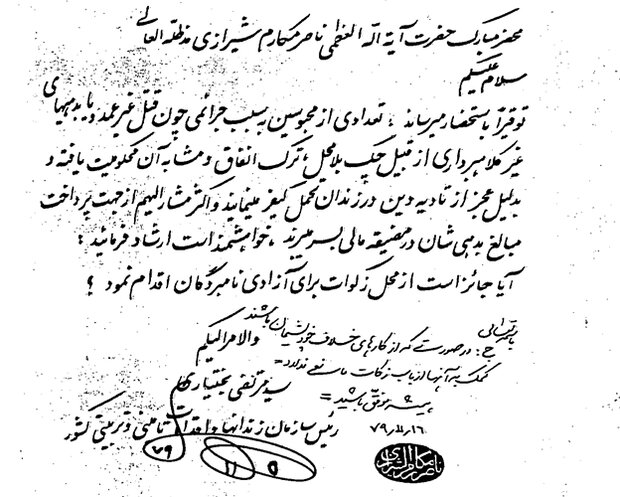 محضر مبارک حضرت آیة اله العظمی ناصر مکارم شیرازی مدظله العالی
سلام علیکم
توقیراً باستحضار میرساند ، تعدادی از محبوسین بسبب جرائمی چون قتل غیر عمد و یا بدهیهای
غیر کلاهبرداری از قبیل چک بلامحل، ترک انفاق و مشابه آن محکومیت یافته و
بدلیل عجز از تادیه دین در زندان تحمل کیفر مینمایند و اکثر مشارالیهم از جهت پرداخت
مبالغ بدهی شان در مضیقه مالی بسر میبرند ، خواهشمند است ارشاد فرمائید :
آیا جائز است از محل زکوات برای آزادی نامبردگان اقدام نمود ؟
باسمه تعالی
ج : در صورتی که از کارهای خلاف خود پشیمان باشند
والامر الیکم
کمک به آنها از باب زکات مانعی ندارد =
سید مرتضی بختیاری
همیشه موفق باشید =
رئیس سازمان زندانها و اقدامات تامینی و تربیتی کشور
۷۹
۱۱
۵
ناصر مکارم الشیرازی